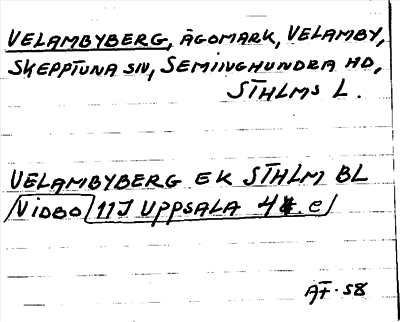 VELAMBYBERG, ÄGOMARK, VELAMBY,
SKEPPTUNA SN, SEMINGHUNDRA HD,
STHLMS L.
VELAMBYBERG EK STHLM BL
VIDBO 11J UPPSALA 4 . e
ÄT. 58